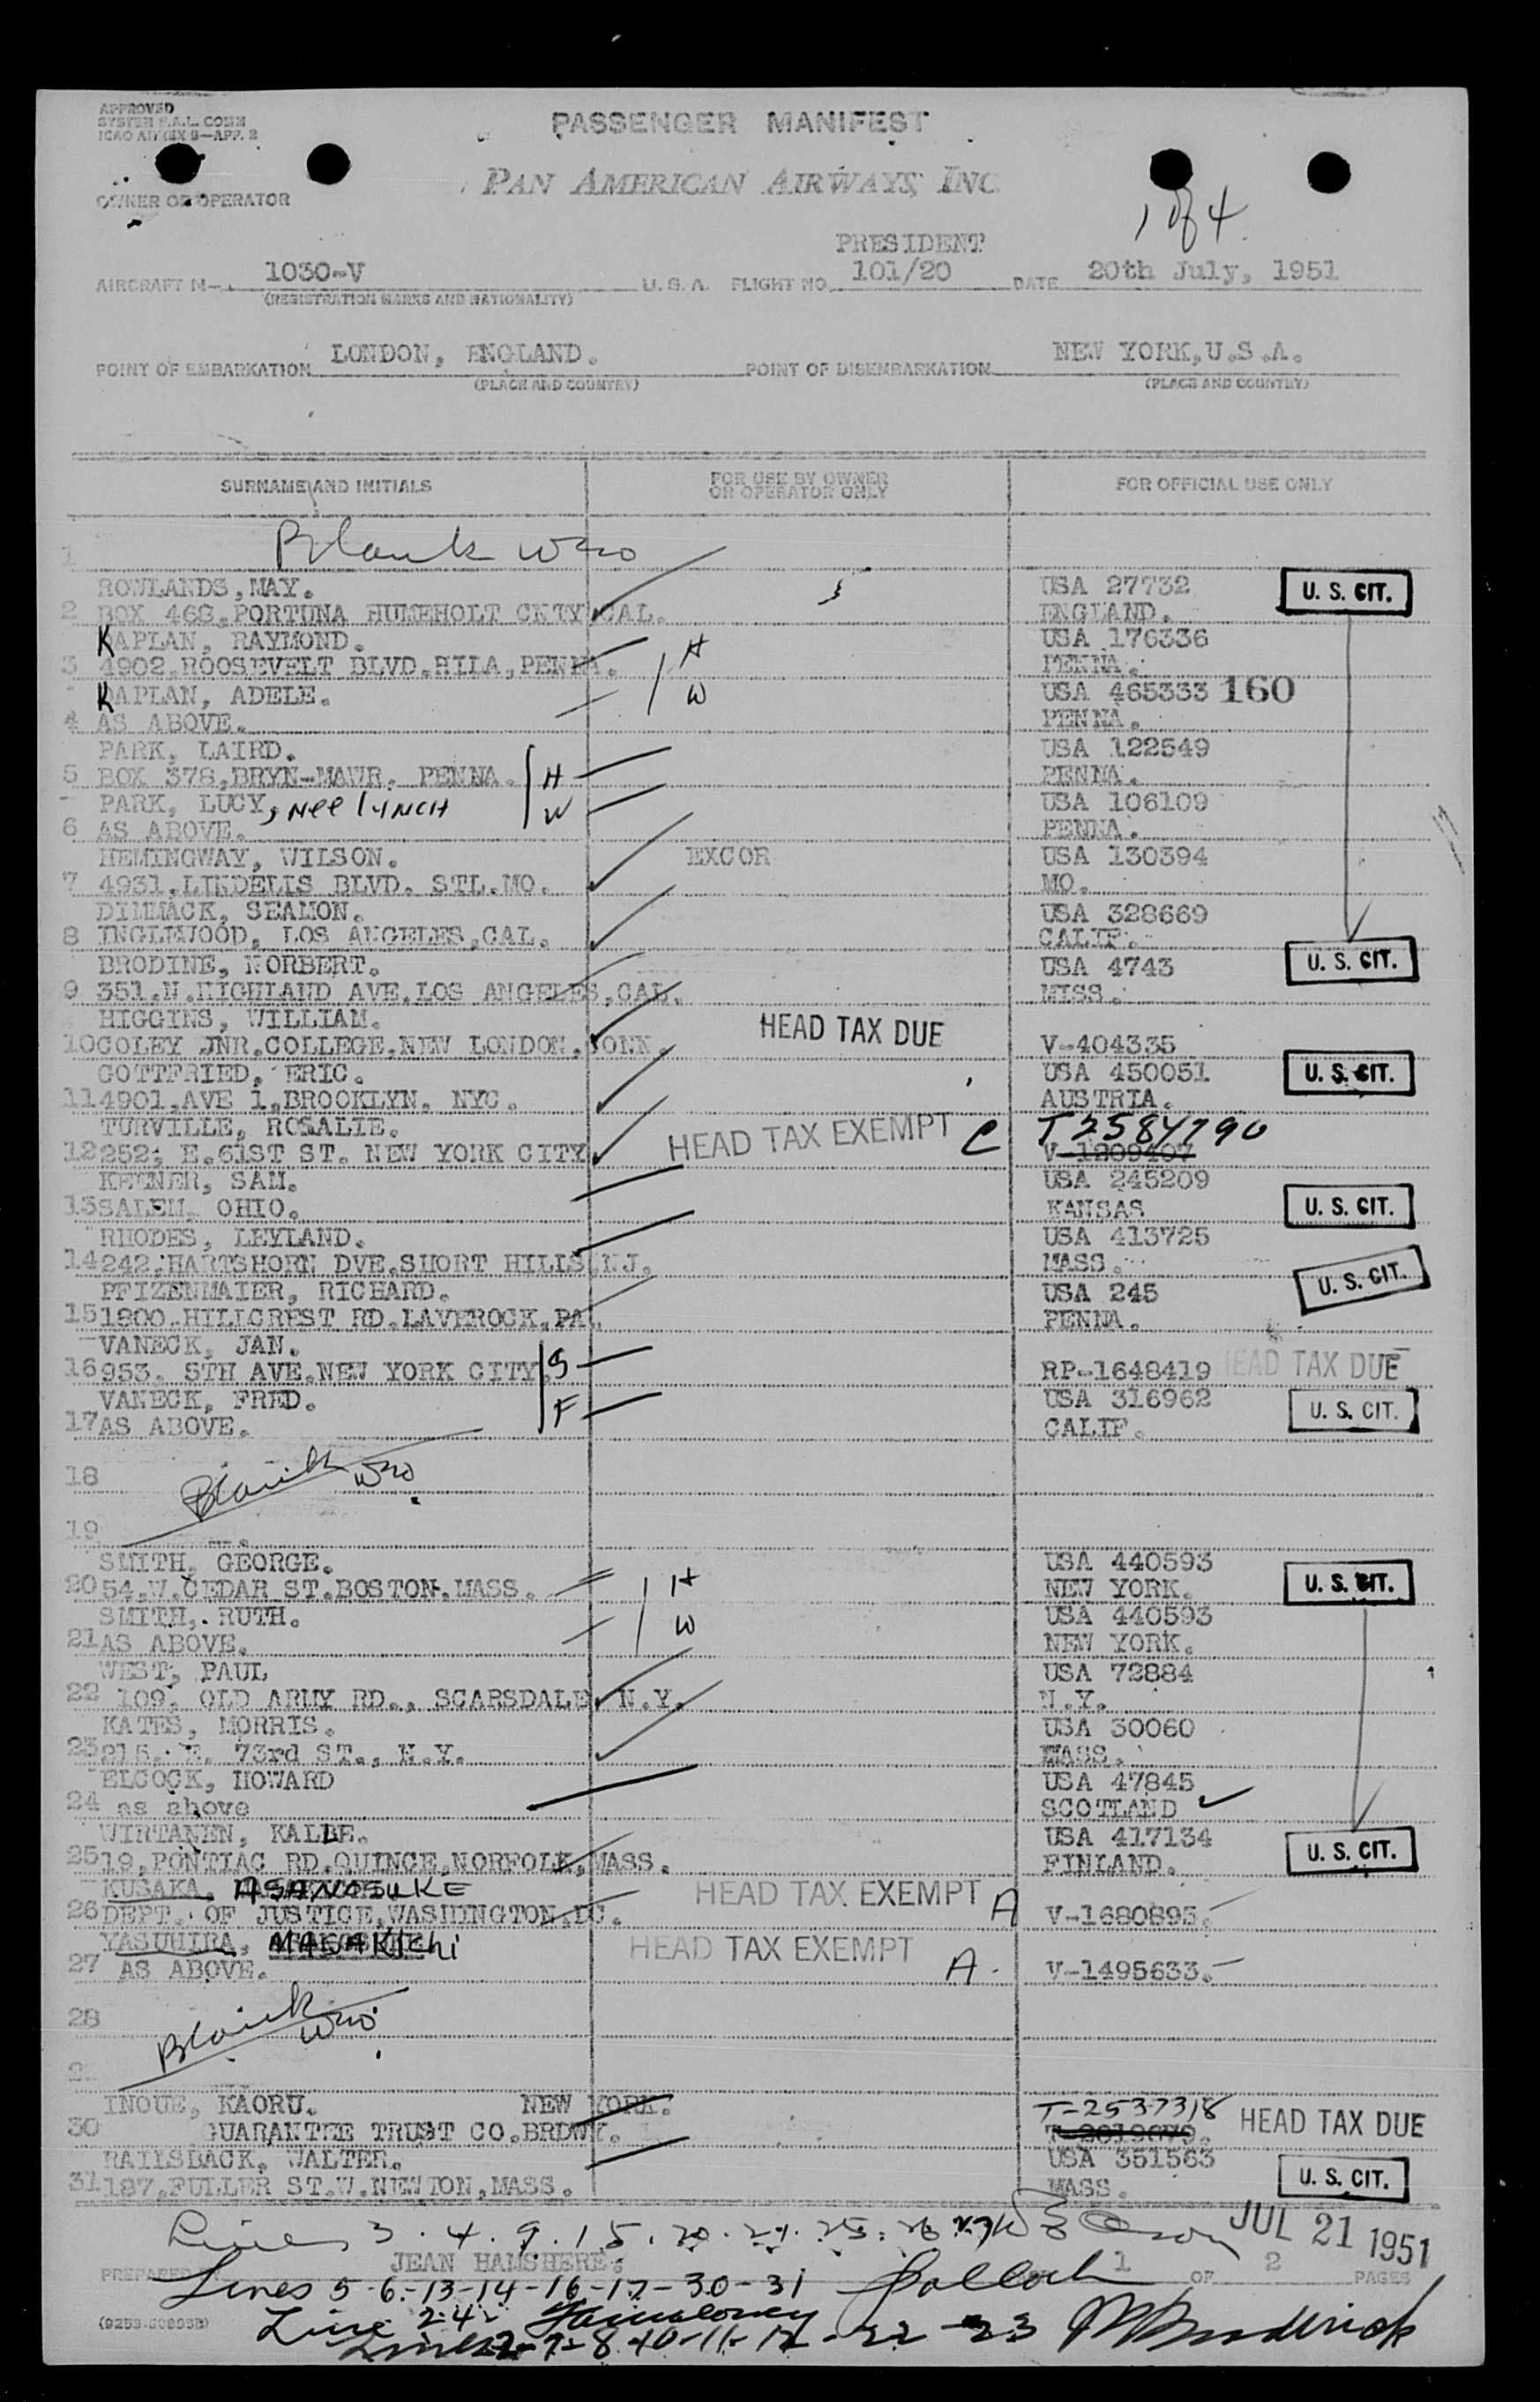 APPROVED
SYSTEM F.A.L. COMM
ICAO ANNEX 9—APP. 2
PASSENGER MANIFEST
PAN AMERICAN AIRWAYS, INC
OWNER OR OPERATOR
1 of 4
PRESIDENT
AIRCRAFT N— 1030-V U. S. A. FLIGHT NO. 101/20 DATE 20th July, 1951
(REGISTRATION MARKS AND NATIONALITY)
POINT OF EMBARKATION LONDON, ENGLAND. POINT OF DISEMBARKATION NEW YORK,U.S.A.
(PLACE AND COUNTRY) (PLACE AND COUNTRY)
SURNAME AND INITIALS FOR USE BY OWNER OR OPERATOR ONLY FOR OFFICIAL USE ONLY
1 Blank
ROWLANDS,MAY. USA 27732 U. S. CIT.
2 BOX 468.PORTUNA HUMEHOLT CNTY CAL. ENGLAND.
KAPLAN, RAYMOND. H USA 176336
3 4902.ROOSEVELT BLVD.HILA,PENNA. PENNA.
KAPLAN, ADELE. W USA 465333 160
4 AS ABOVE. PENNA.
PARK, LAIRD. USA 122549
5 BOX 378,BRYN-MAWR. PENNA. H PENNA.
PARK, LUCY, nee LYNCH W USA 106109
6 AS ABOVE. PENNA.
HEMINGWAY, WILSON. EXCOR USA 130394
7 4931.LINDELIS BLVD. STL.MO. MO.
DIMMACK, SEAMON. USA 328669
8 INGLIWOOD, LOS ANGELES,CAL. CALIF.
BRODINE, NORBERT. USA 4743 U. S. CIT.
9 351.N.HIGHLAND AVE.LOS ANGELES,CAL. MISS.
HIGGINS, WILLIAM. HEAD TAX DUE
10 COLEY JNR.COLLEGE.NEW LONDON. CONN. V-404335
GOTTFRIED, ERIC. USA 450051 U. S. CIT.
11 4901,AVE 1,BROOKLYN. NYC. AUSTRIA.
TURVILLE, ROSALIE. HEAD TAX EXEMPT C T2584790
12 252, E.61ST ST. NEW YORK CITY V-1209407
KETNER, SAM. USA 245209
13 SALEM, OHIO. KANSAS U. S. CIT.
RHODES, LEYLAND. USA 413725
14 242,HARTSHORN DVE.SHORT HILLS.NJ. MASS.
PFIZENMAIER, RICHARD. USA 245 U. S. CIT.
15 1800.HILLCREST RD.LAVEROCK,PA. PENNA.
VANECK, JAN.
16 953. 5TH AVE.NEW YORK CITY. S RP-1648419 HEAD TAX DUE
VANECK, FRED. F USA 316962 U. S. CIT.
17 AS ABOVE. CALIF.
18 Blank
19
SMITH, GEORGE. H USA 440593
20 54.W.CEDAR ST.BOSTON.MASS. NEW YORK. U. S. CIT.
SMITH, RUTH. W USA 440593
21 AS ABOVE. NEW YORK.
WEST, PAUL USA 72884
22 109, OLD ARMY RD., SCARSDALE N.Y. N.Y.
KATES, MORRIS. USA 30060
23 215, E. 73rd ST., N.Y. MASS.
ELCOCK, HOWARD USA 47845
24 as above SCOTLAND
WIRTANEN, KALLE. USA 417134
25 19,PONTIAC RD.QUINCE,NORFOLK,MASS. FINLAND. U. S. CIT.
KUSAKA, ASANOSUKE HEAD TAX EXEMPT A
26 DEPT. OF JUSTICE,WASHINGTON.DC. V-1680893.
YASUHIRA, MASAKIChi HEAD TAX EXEMPT A.
27 AS ABOVE. V-1495633.
28 Blank
INOUE, KAORU. NEW YORK. T-2537318 HEAD TAX DUE
30 GUARANTEE TRUST CO.BRDWY.
RAILSBACK, WALTER. USA 351563
31 187,FULLER ST.W.NEWTON,MASS. MASS. U. S. CIT.
Lines 3.4.9.15.20.21.25.26 JUL 21 1951
PREPARED JEAN HAMSHERE. 1 OF 2 PAGES
Lines 5-6-13-14-16-17-30-31 Pollock
Line 24
Lines 2-7-8-10-11-12-22-23 Broderick